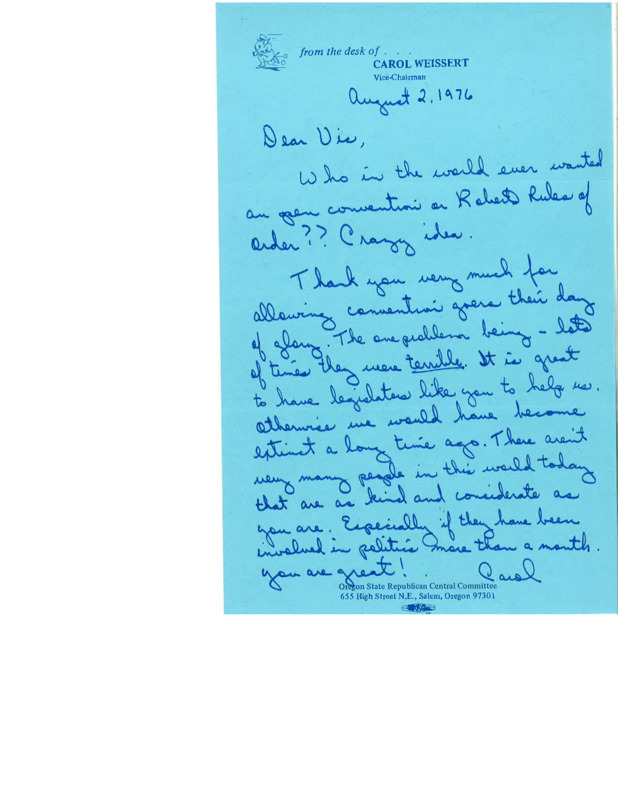 from the desk of . . .
CAROL WEISSERT
Vice-Chairman
August 2, 1976
Dear Vic,
Who in the world ever wanted
an open convention or Roberts Rules of
order?? Crazy idea.
Thank you very much for
allowing convention goers their day
of glory. The one problem being - lots
of times they were terrible. It is great
to have legislators like you to help us.
Otherwise we would have become
extinct a long time ago. There aren't
very many people in this world today
that are as kind and considerate as
you are. Especially if they have been
involved in politics more than a month.
You are great!
Carol
Oregon State Republican Central Committee
655 High Street N.E., Salem, Oregon 97301